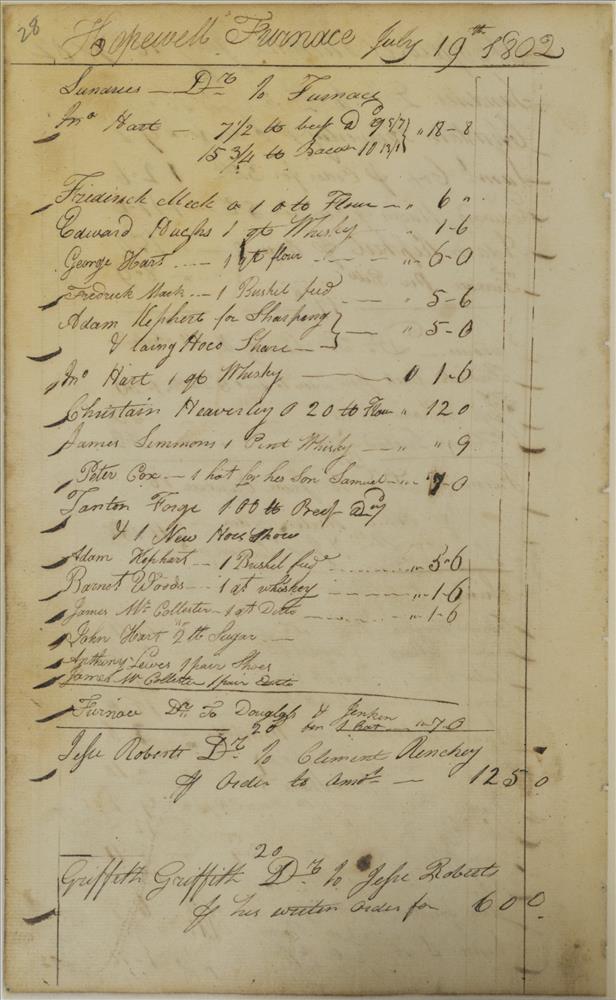 28
Hopewell Furnace July 19th 1802
Sundries — Dr. to Furnace
Jno Hart — 7 1/2 lb beef D " 18-8
15 3/4 lb Bacon 10
Fredirick Meck a 10 lb Flour — " 6 "
Edward Hughs 1 qt Whisky " 1-6
George Hart — 1 flour — " 6-0
Fredrick Mack — 1 Bushel feed — " 5-6
Adam Hephert for Sharping
& laing Hoes Share — } — " 5-0
Jno Hart 1 qt Whisky — " 1-6
Christain Heaverley a 20 lb Flour " 12 0
James Simmons 1 Pint Whisky — " " 9
Peter Cox — 1 hat for his Son Samuel — " 7-0
Tanton Forge 100 lb Beef
& 1 New Hoes
Adam Hephert — 1 Bushel feed " 5-6
Barnet Woods — 1 qt whiskey — " 1-6
James Mc Collester — 1 qt Ditto — " 1-6
John Hart 2 lb Sugar —
Anthony Lewes 1 pair Shoes
James Mc Collester 1 pair Ditto
Furnace Dr. To Douglass & Jenken
20 1 Hat — " 7-0
Jesse Roberts Dr. to Clement Renchey
order to amot — 12 5 0
20
Griffith Griffith Dr. to Jesse Roberts
his writen order for 6 0 0